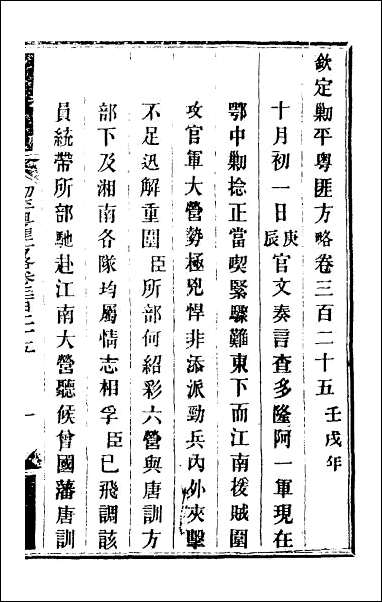 欽定勦平粵匪方略卷三百二十五 壬戌年
十月初一日庚辰官文奏言查多隆阿一軍現在
鄂中勦捻正當喫緊驟難東下而江南援賊圍
攻官軍大營勢極兇悍非添派勁兵內外夾擊
不足迅解重圍臣所部何紹彩六營與唐訓方
部下及湘南各隊均屬情志相孚臣已飛調該
員統帶所部馳赴江南大營聽候曾國藩唐訓